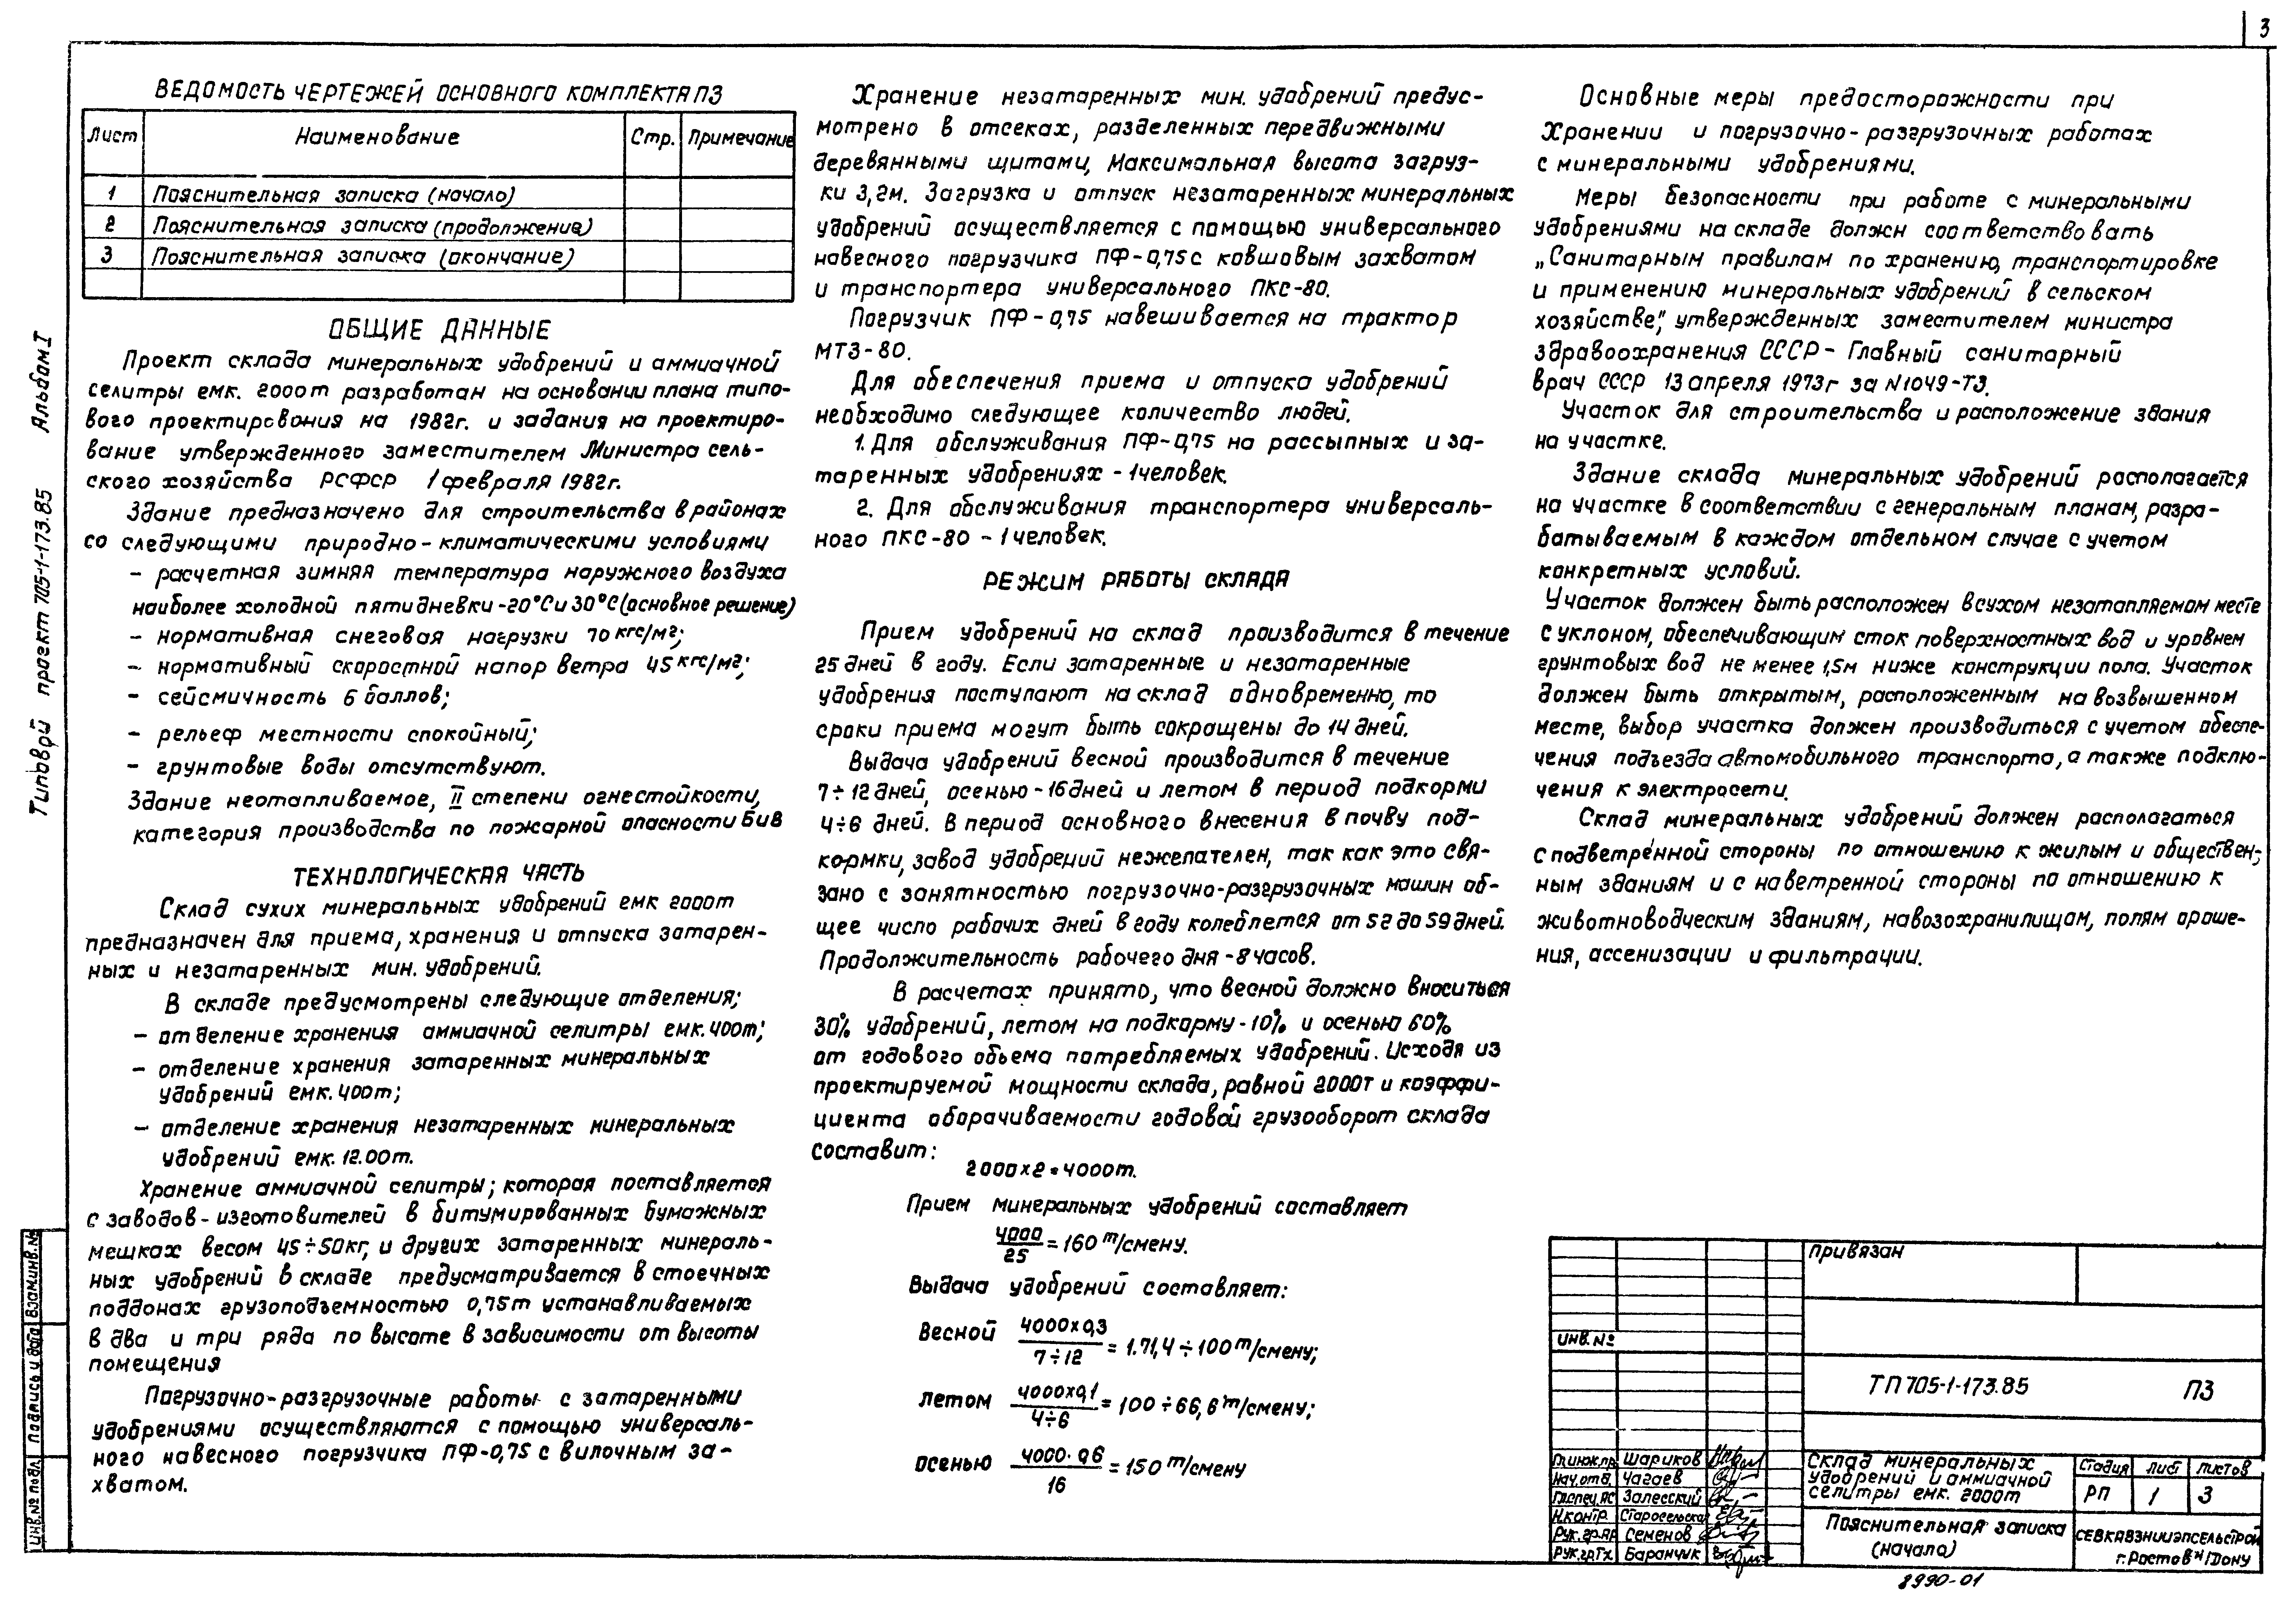 3
Альбом I
Типовой проект 705-1-173.85
ВЕДОМОСТЬ ЧЕРТЕЖЕЙ ОСНОВНОГО КОМПЛЕКТА ПЗ
Лист Наименование Стр. Примечание
1 Пояснительная записка (начало)
2 Пояснительная записка (продолжение)
3 Пояснительная записка (окончание)
ОБЩИЕ ДАННЫЕ
Проект склада минеральных удобрений и аммиачной
селитры емк. 2000т разработан на основании плана типо-
вого проектирования на 1982г. и задания на проектиро-
вание утвержденного заместителем Министра сель-
ского хозяйства РСФСР 1 февраля 1982г.
Здание предназначено для строительства в районах
со следующими природно-климатическими условиями
- расчетная зимняя температура наружного воздуха
наиболее холодной пятидневки -20°С и 30°С (основное решение)
- нормативная снеговая нагрузки 70 кгс/м2;
- нормативный скоростной напор ветра 45 кгс/м2;
- сейсмичность 6 баллов;
- рельеф местности спокойный;
- грунтовые воды отсутствуют.
Здание неотапливаемое, II степени огнестойкости,
категория производства по пожарной опасности Б и В
ТЕХНОЛОГИЧЕСКАЯ ЧАСТЬ
Склад сухих минеральных удобрений емк 2000т
предназначен для приема, хранения и отпуска затарен-
ных и незатаренных мин. удобрений.
В складе предусмотрены следующие отделения;
- отделение хранения аммиачной селитры емк. 400т;
- отделение хранения затаренных минеральных
удобрений емк. 400т;
- отделение хранения незатаренных минеральных
удобрений емк. 12.00т.
Хранение аммиачной селитры; которая поставляется
с заводов-изготовителей в битумированных бумажных
мешках весом 45÷50кг, и других затаренных минераль-
ных удобрений в складе предусматривается в стоечных
поддонах грузоподъемностью 0,75т устанавливаемых
в два и три ряда по высоте в зависимости от высоты
помещения
Погрузочно-разгрузочные работы с затаренными
удобрениями осуществляются с помощью универсаль-
ного навесного погрузчика ПФ-0,75 с вилочным за-
хватом.
Хранение незатаренных мин. удобрений предус-
мотрено в отсеках, разделенных передвижными
деревянными щитами, Максимальная высота загруз-
ки 3,2м. Загрузка и отпуск незатаренных минеральных
удобрений осуществляется с помощью универсального
навесного погрузчика ПФ-0,75 с ковшовым захватом
и транспортера универсального ПКС-80.
Погрузчик ПФ-0,75 навешивается на трактор
МТЗ-80.
Для обеспечения приема и отпуска удобрений
необходимо следующее количество людей.
1. Для обслуживания ПФ-0,75 на рассыпных и за-
таренных удобрениях - 1 человек.
2. Для обслуживания транспортера универсаль-
ного ПКС-80 - 1 человек.
РЕЖИМ РАБОТЫ СКЛАДА
Прием удобрений на склад производится в течение
25 дней в году. Если затаренные и незатаренные
удобрения поступают на склад одновременно, то
сроки приема могут быть сокращены до 14 дней.
Выдача удобрений весной производится в течение
7÷12 дней, осенью - 16 дней и летом в период подкорми
4÷6 дней. В период основного внесения в почву под-
кормки, завод удобрений нежелателен, так как это свя-
зано с занятностью погрузочно-разгрузочных машин об-
щее число рабочих дней в году колеблется от 52 до 59 дней.
Продолжительность рабочего дня - 8 часов.
В расчетах принято, что весной должно вноситься
30% удобрений, летом на подкорму - 10% и осенью 60%
от годового объема потребляемых удобрений. Исходя из
проектируемой мощности склада, равной 2000т и коэффи-
циента оборачиваемости годовой грузооборот склада
составит:
2000 x 2 = 4000т.
Прием минеральных удобрений составляет
4000/25 = 160 т/смену.
Выдача удобрений составляет:
Весной 4000 x 0,3 / 7÷12 = 1.71,4÷100 т/смену;
летом 4000 x 0,1 / 4÷6 = 100÷66,6 т/смену;
осенью 4000 · 0,6 / 16 = 150 т/смену
Основные меры предосторожности при
Хранении и погрузочно-разгрузочных работах
с минеральными удобрениями.
Меры безопасности при работе с минеральными
удобрениями на складе должн соответствовать
„Санитарным правилам по хранению, транспортировке
и применению минеральных удобрений в сельском
хозяйстве", утвержденных заместителем министра
здравоохранения СССР - Главный санитарный
врач СССР 13 апреля 1973г за N1049-73.
Участок для строительства и расположение здания
на участке.
Здание склада минеральных удобрений располагается
на участке в соответствии с генеральным планам, разра-
батываемым в каждом отдельном случае с учетом
конкретных условий.
Участок должен быть расположен в сухом незатапляемом месте
с уклоном, обеспечивающим сток поверхностных вод и уровнем
грунтовых вод не менее 1,5м ниже конструкции пола. Участок
должен быть открытым, расположенным на возвышенном
месте, выбор участка должен производиться с учетом обеспе-
чения подъезда автомобильного транспорта, а также подклю-
чения к электросети.
Склад минеральных удобрений должен располагаться
с подветренной стороны по отношению к жилым и обществен-
ным зданиям и с наветренной стороны по отношению к
животноводческим зданиям, навозохранилищам, полям ороше-
ния, ассенизации и фильтрации.
привязан
инв. №
ТП 705-1-173.85 ПЗ
Гл.инж.пр. Шариков
Нач.отд. Чагаев
Гл.спец.АС Залесский
Н.контр. Старосельская
Рук.гр.АР Семенов
Рук.гр.Тх Баранчик
Склад минеральных
удобрений и аммиачной
селитры емк. 2000т
Стадия Лист Листов
РП 1 3
Пояснительная записка
(начало)
СЕВКАВЗНИИЭПСЕЛЬСТРОЙ
г. Ростов н/Дону
8990-01
Инв.№ подл. Подпись и дата Взам.инв.№